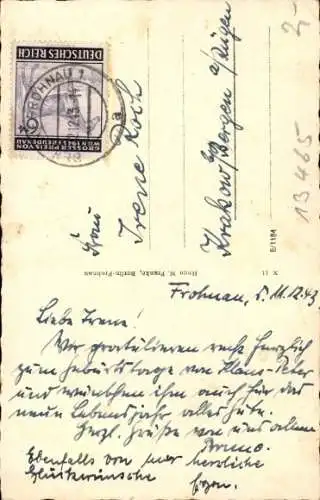 DEUTSCHES REICH
GROSSER PREIS VON
WIEN 1943 FREUDENAU
FROHNAU 1
a
2,-
13465
Frau
Irene Koch
Krakow b/Bergen
a/Rügen
E/1184
X 11
Hugo M. Franke, Berlin-Frohnau
Frohnau, d. 11.12.43
Liebe Irene!
Wir gratulieren recht herzlich
zum Geburtstage von Klaus-Peter
und wünschen ihm auch für das
neue Lebensjahr alles Gute.
Herzl. Grüße von uns allen
Bruno.
Ebenfalls von mir herzliche
Glückwünsche